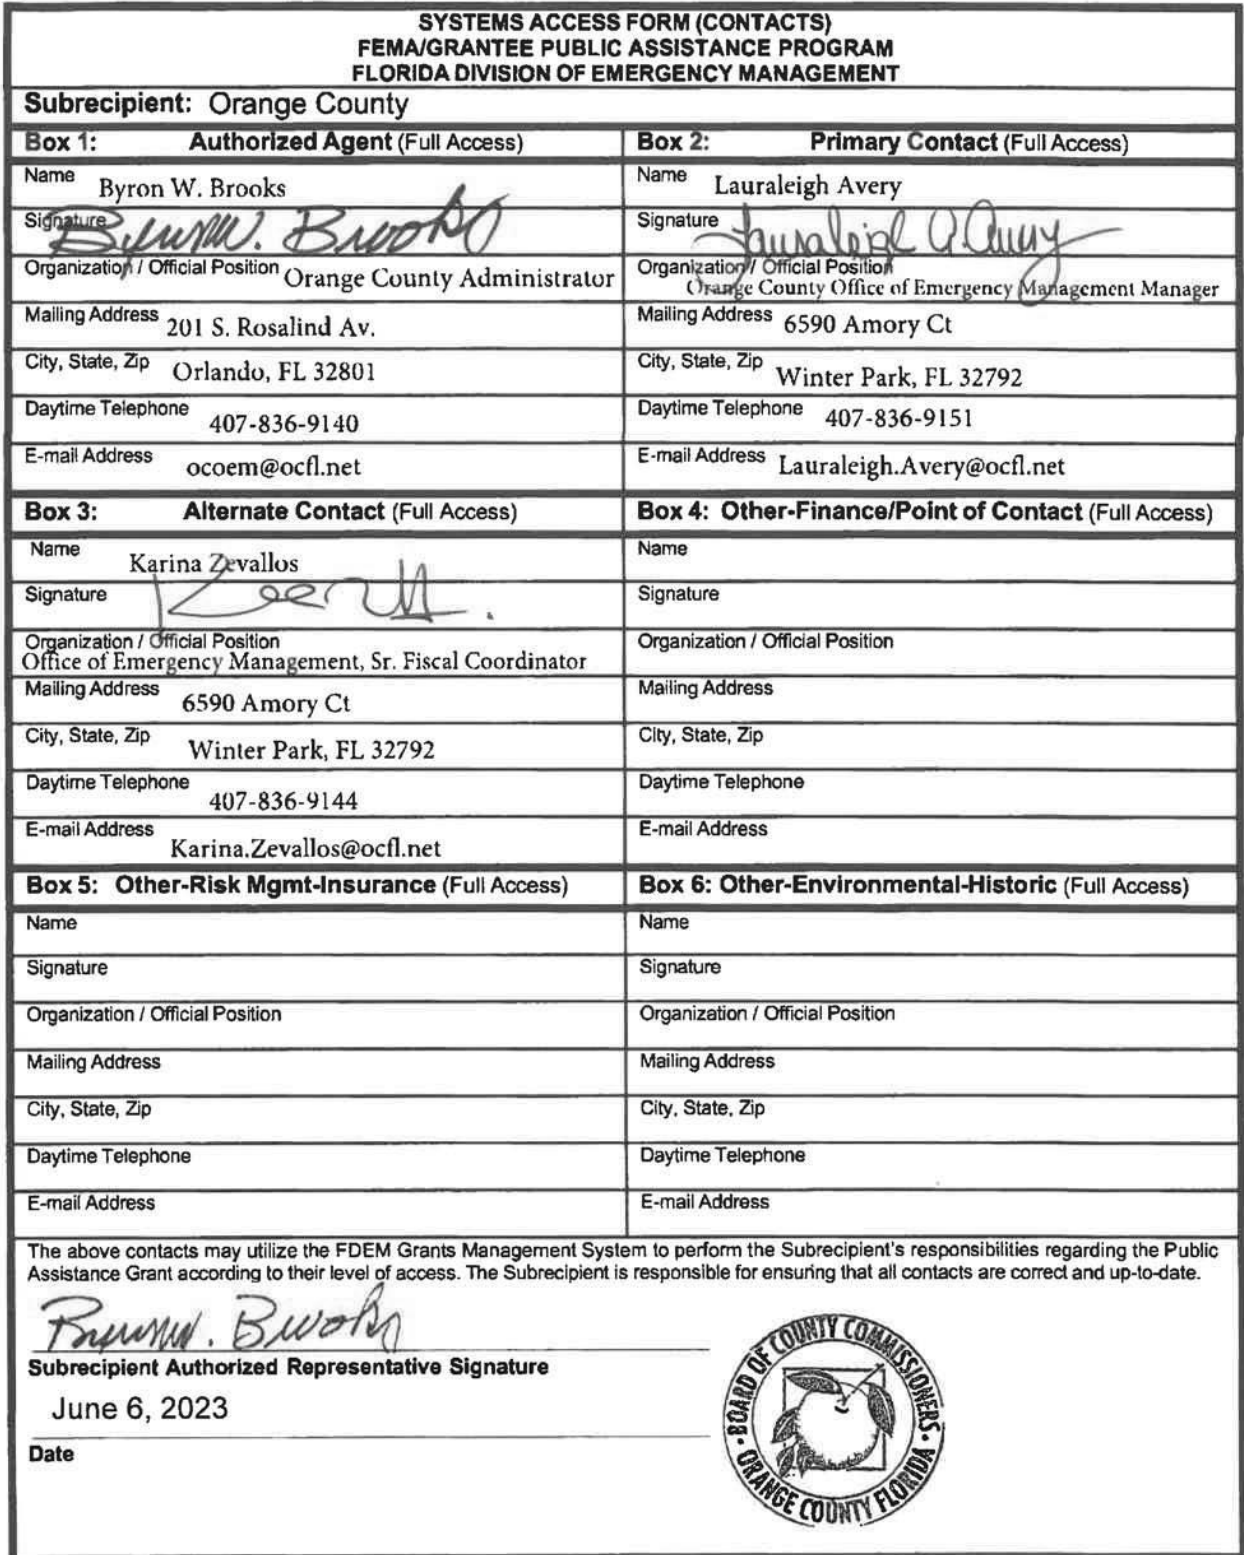 SYSTEMS ACCESS FORM (CONTACTS)
FEMA/GRANTEE PUBLIC ASSISTANCE PROGRAM
FLORIDA DIVISION OF EMERGENCY MANAGEMENT
Subrecipient: Orange County
Box 1: Authorized Agent (Full Access)
Name Byron W. Brooks
Signature Byron W. Brooks
Organization / Official Position Orange County Administrator
Mailing Address 201 S. Rosalind Av.
City, State, Zip Orlando, FL 32801
Daytime Telephone 407-836-9140
E-mail Address ocoem@ocfl.net
Box 2: Primary Contact (Full Access)
Name Lauraleigh Avery
Signature Lauraleigh A. Avery
Organization / Official Position
Orange County Office of Emergency Management Manager
Mailing Address 6590 Amory Ct
City, State, Zip Winter Park, FL 32792
Daytime Telephone 407-836-9151
E-mail Address Lauraleigh.Avery@ocfl.net
Box 3: Alternate Contact (Full Access)
Name Karina Zevallos
Signature
Organization / Official Position
Office of Emergency Management, Sr. Fiscal Coordinator
Mailing Address 6590 Amory Ct
City, State, Zip Winter Park, FL 32792
Daytime Telephone 407-836-9144
E-mail Address Karina.Zevallos@ocfl.net
Box 4: Other-Finance/Point of Contact (Full Access)
Name
Signature
Organization / Official Position
Mailing Address
City, State, Zip
Daytime Telephone
E-mail Address
Box 5: Other-Risk Mgmt-Insurance (Full Access)
Name
Signature
Organization / Official Position
Mailing Address
City, State, Zip
Daytime Telephone
E-mail Address
Box 6: Other-Environmental-Historic (Full Access)
Name
Signature
Organization / Official Position
Mailing Address
City, State, Zip
Daytime Telephone
E-mail Address
The above contacts may utilize the FDEM Grants Management System to perform the Subrecipient's responsibilities regarding the Public
Assistance Grant according to their level of access. The Subrecipient is responsible for ensuring that all contacts are correct and up-to-date.
Byron W. Brooks
Subrecipient Authorized Representative Signature
June 6, 2023
Date
BOARD OF COUNTY COMMISSIONERS
ORANGE COUNTY FLORIDA